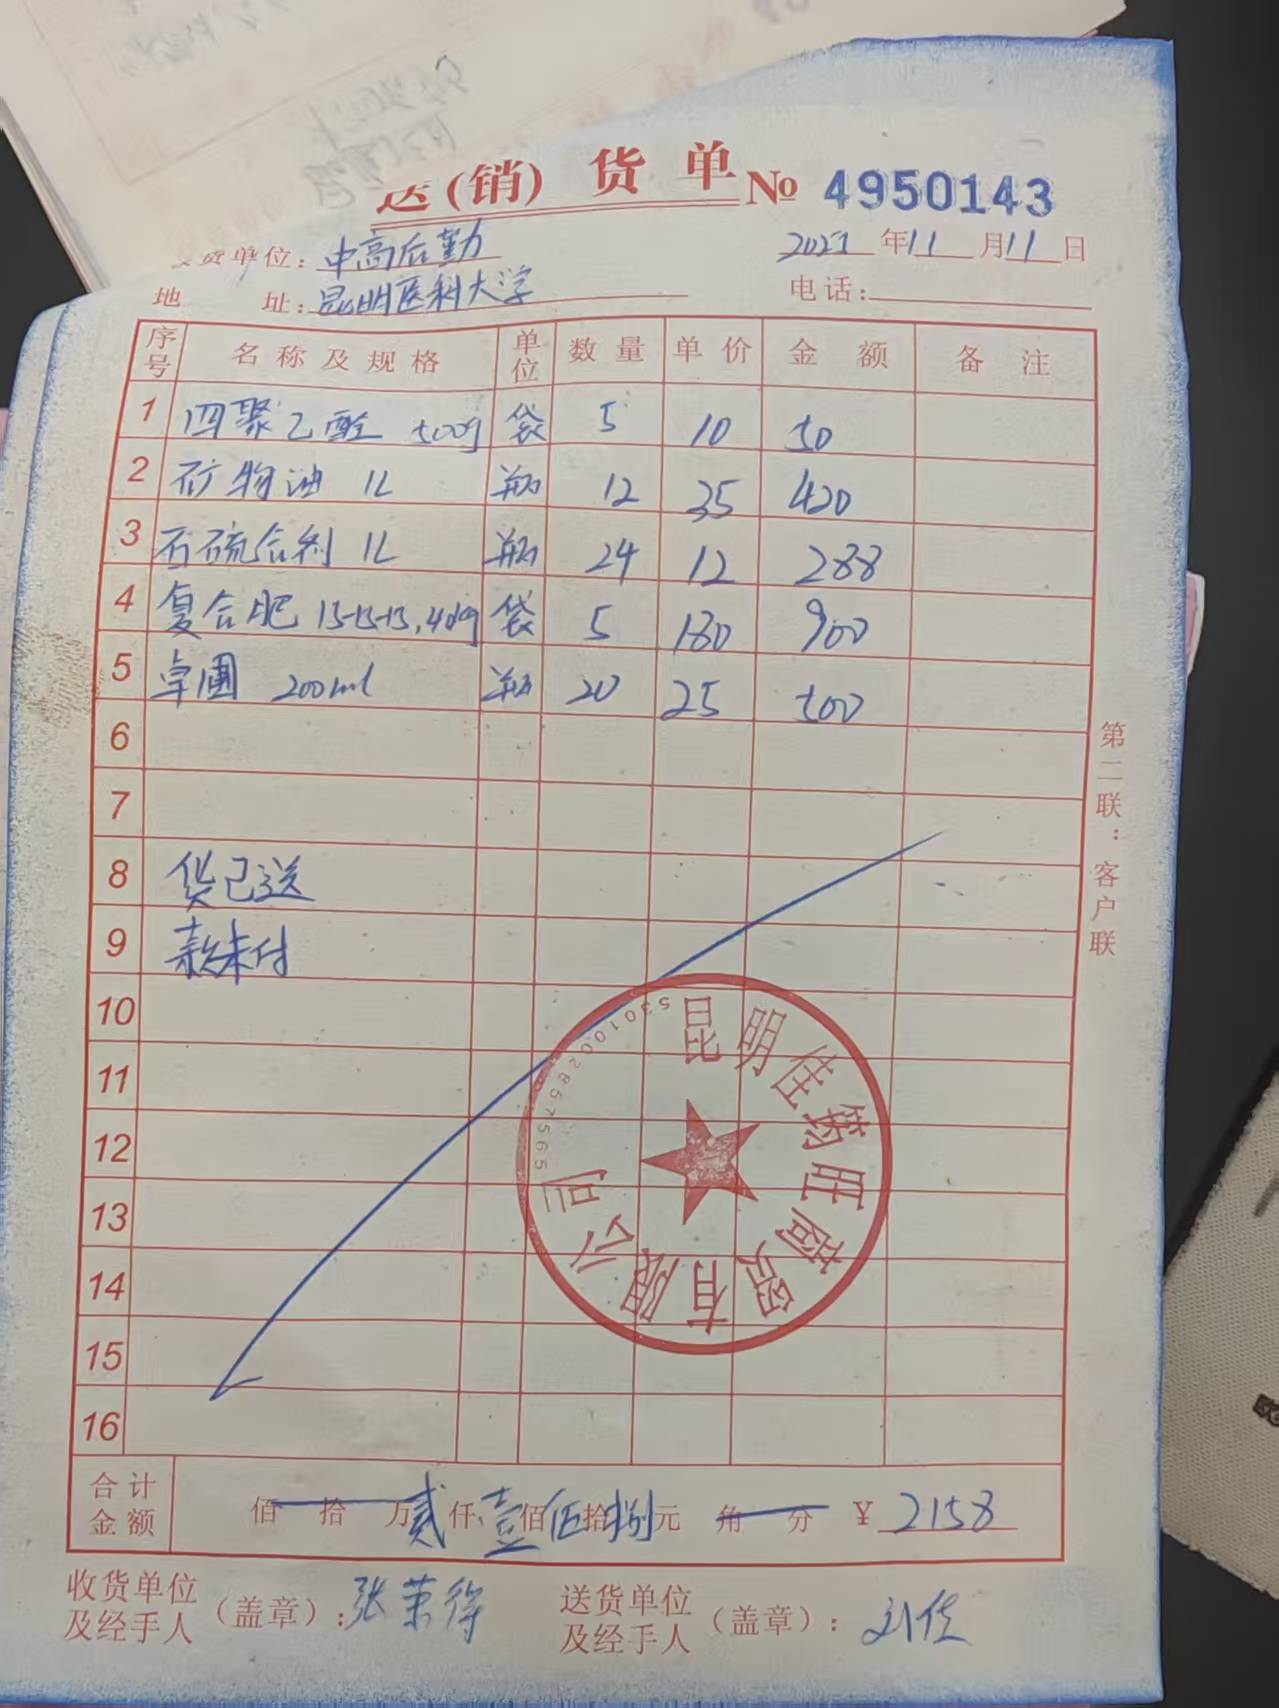 送(销)货单 № 4950143
收货单位：中高后勤 2021年11月11日
地 址：昆明医科大学 电话：
序号 名称及规格 单位 数量 单价 金额 备注
1 四聚乙醛 500g 袋 5 10 50
2 矿物油 1L 瓶 12 35 420
3 石硫合剂 1L 瓶 24 12 288
4 复合肥 15-15-15,40kg 袋 5 180 900
5 卓圃 200ml 瓶 20 25 500
6
7
8 货已送
9 款未付
10
11
12
13
14
15
16
第二联：客户联
昆明佳筠旺商贸有限公司
5301002857565
合计金额 佰拾万贰仟壹佰伍拾捌元角分 ¥2158
收货单位及经手人（盖章）：张荣 送货单位及经手人（盖章）：刘佳